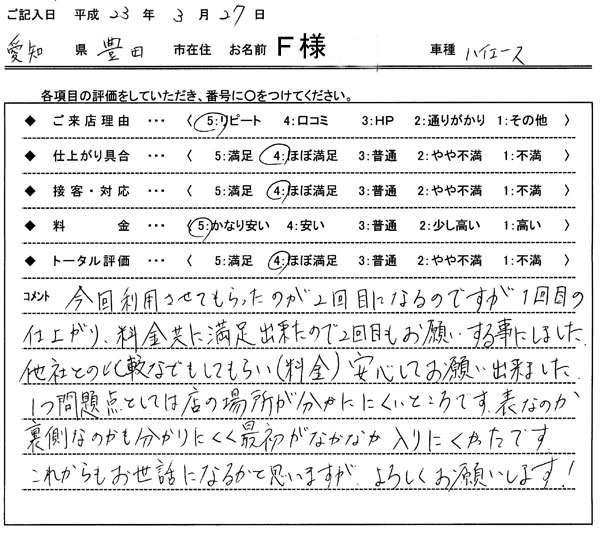 ご記入日 平成 23 年 3 月 27 日
愛知 県 豊田 市在住 お名前 F様 車種 ハイエース
各項目の評価をしていただき、番号に○をつけてください。
◆ ご来店理由 ・・・ 〈 5:リピート 4:口コミ 3:HP 2:通りがかり 1:その他 〉
◆ 仕上がり具合 ・・・ 〈 5:満足 4:ほぼ満足 3:普通 2:やや不満 1:不満 〉
◆ 接客・対応 ・・・ 〈 5:満足 4:ほぼ満足 3:普通 2:やや不満 1:不満 〉
◆ 料金 ・・・ 〈 5:かなり安い 4:安い 3:普通 2:少し高い 1:高い 〉
◆ トータル評価 ・・・ 〈 5:満足 4:ほぼ満足 3:普通 2:やや不満 1:不満 〉
コメント 今回利用させてもらったのが2回目になるのですが1回目の
仕上がり、料金共に満足出来たので2回目もお願いする事にしました.
他社との比較などもしてもらい(料金)安心してお願い出来ました.
1つ問題点としては店の場所が分かにくいところです.表なのか
裏側なのかも分かりにくく最初がなかなか入りにくかったです.
これからもお世話になるかと思いますが、よろしくお願いします!